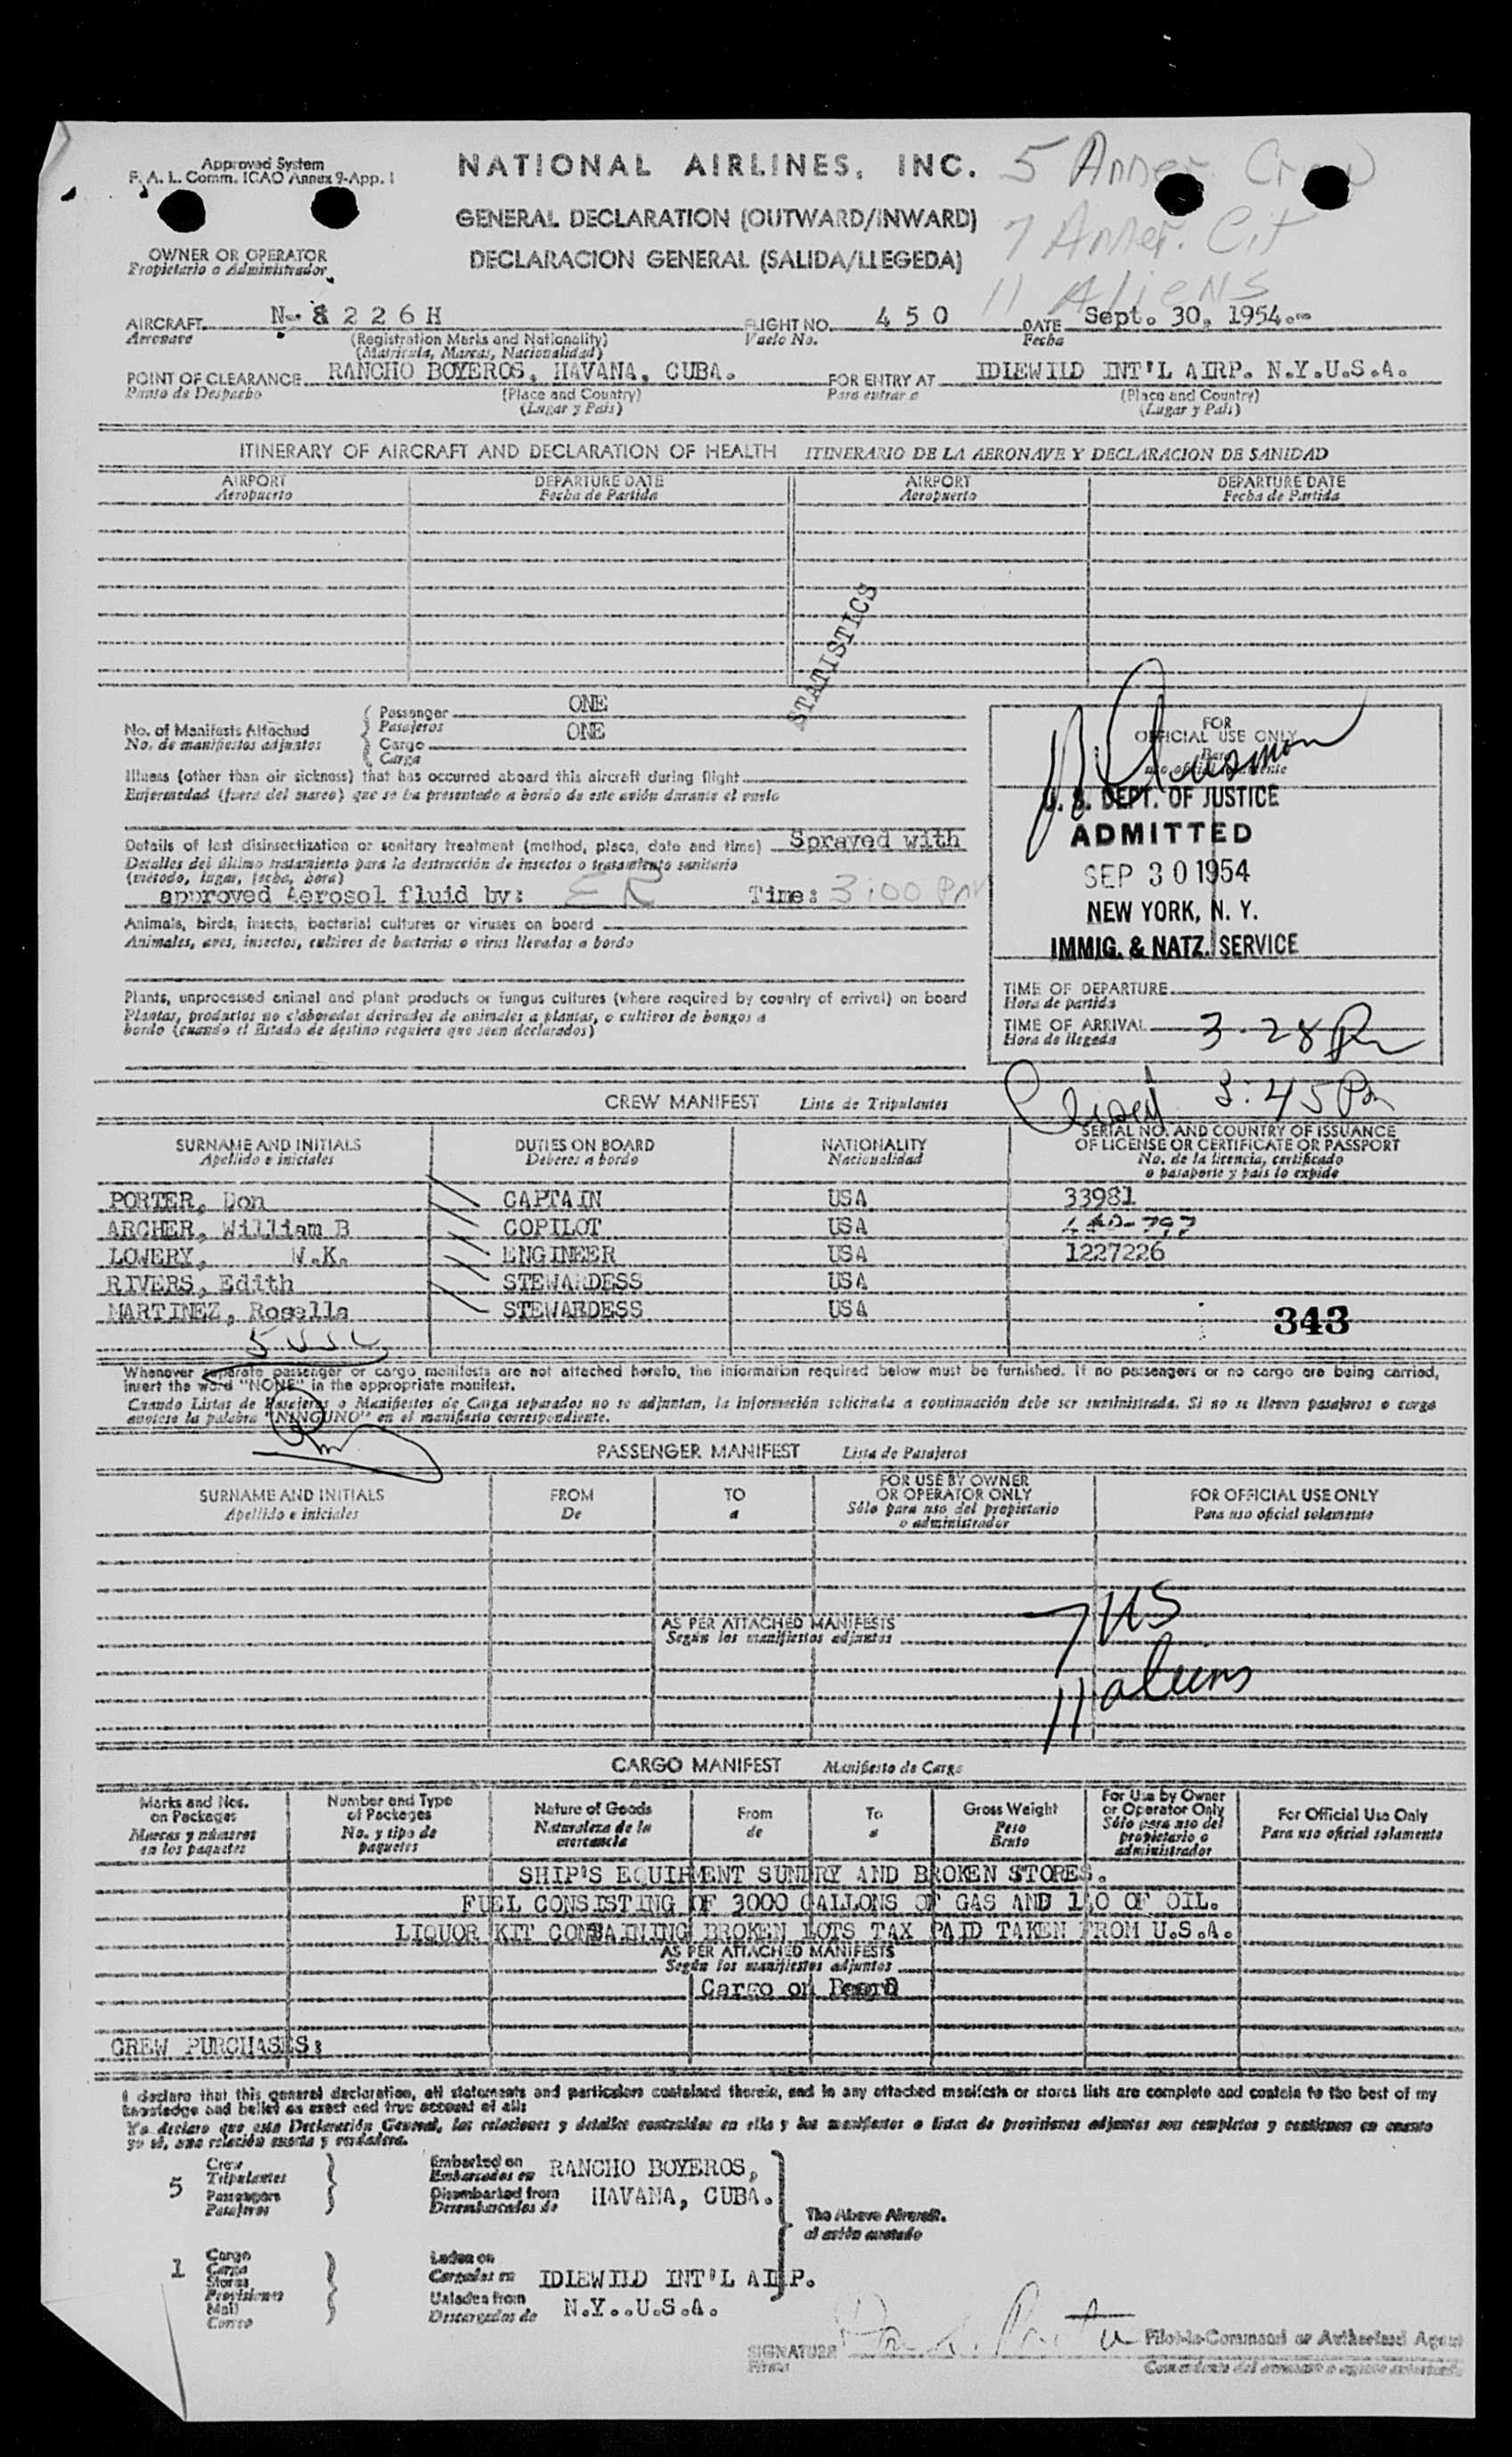 Approved System
F. A. L. Comm. ICAO Annex 9-App. 1
NATIONAL AIRLINES, INC.
5 Amer. Crew
GENERAL DECLARATION (OUTWARD/INWARD)
7 Amer. Cit
OWNER OR OPERATOR
Propietario o Administrador
DECLARACION GENERAL (SALIDA/LLEGEDA)
11 Aliens
AIRCRAFT N-8226H FLIGHT NO. 450 DATE Sept. 30, 1954.
Aeronave (Registration Marks and Nationality) Vuelo No. Fecha
(Matricula, Marcas, Nacionalidad)
POINT OF CLEARANCE RANCHO BOYEROS, HAVANA, CUBA. FOR ENTRY AT IDIEWILD INT'L AIRP. N.Y.U.S.A.
Punto de Despacho (Place and Country) Para entrar a (Place and Country)
(Lugar y Pais) (Lugar y Pais)
ITINERARY OF AIRCRAFT AND DECLARATION OF HEALTH ITINERARIO DE LA AERONAVE Y DECLARACION DE SANIDAD
AIRPORT DEPARTURE DATE AIRPORT DEPARTURE DATE
Aeropuerto Fecha de Partida Aeropuerto Fecha de Partida
STATISTICS
No. of Manifests Attached
No. de manifiestos adjuntos
Passenger ONE
Pasajeros
Cargo ONE
Carga
Illness (other than air sickness) that has occurred aboard this aircraft during flight
Enfermedad (fuera del mareo) que se ha presentado a bordo de este avión durante el vuelo
Details of last disinsectization or sanitary treatment (method, place, date and time) Sprayed with
Detalles del último tratamiento para la destrucción de insectos o tratamiento sanitario
(método, lugar, fecha, hora)
approved Aerosol fluid by: ER Time: 3:00 PM
Animals, birds, insects, bacterial cultures or viruses on board
Animales, aves, insectos, cultivos de bacterias o virus llevados a bordo
Plants, unprocessed animal and plant products or fungus cultures (where required by country of arrival) on board
Plantas, productos no elaborados derivados de animales a plantas, o cultivos de hongos a
bordo (cuando el Estado de destino requiere que sean declarados)
FOR
OFFICIAL USE ONLY
Para
uso oficial solamente
U. S. DEPT. OF JUSTICE
ADMITTED
SEP 30 1954
NEW YORK, N. Y.
IMMIG. & NATZ. SERVICE
TIME OF DEPARTURE
Hora de partida
TIME OF ARRIVAL 3-28 Pm
Hora de llegada
3:45 Pm
CREW MANIFEST Lista de Tripulantes
SURNAME AND INITIALS DUTIES ON BOARD NATIONALITY SERIAL NO. AND COUNTRY OF ISSUANCE
Apellido e iniciales Deberes a bordo Nacionalidad OF LICENSE OR CERTIFICATE OR PASSPORT
No. de la licencia, certificado
o pasaporte y pais lo expide
PORTER, Don CAPTAIN USA 33981
ARCHER, William B COPILOT USA
LOWERY, W.K. ENGINEER USA 1227226
RIVERS, Edith STEWARDESS USA
MARTINEZ, Rosella STEWARDESS USA
343
Whenever separate passenger or cargo manifests are not attached hereto, the information required below must be furnished. If no passengers or no cargo are being carried,
insert the word "NONE" in the appropriate manifest.
Cuando Listas de Pasajeros o Manifiestos de Carga separados no se adjuntan, la información solicitada a continuación debe ser suministrada. Si no se lleven pasajeros o carga
anotese la palabra "NINGUNO" en el manifiesto correspondiente.
PASSENGER MANIFEST Lista de Pasajeros
SURNAME AND INITIALS FROM TO FOR USE BY OWNER OR OPERATOR ONLY FOR OFFICIAL USE ONLY
Apellido e iniciales De a Sólo para uso del propietario o administrador Para uso oficial solamente
AS PER ATTACHED MANIFESTS
Según los manifiestos adjuntos
7 US
11 aliens
CARGO MANIFEST Manifiesto de Carga
Marks and Nos. on Packages Number and Type of Packages Nature of Goods From To Gross Weight For Use by Owner or Operator Only For Official Use Only
Marcas y números en los paquetes No. y tipo de paquetes Naturaleza de la mercancia de a Peso Bruto Sólo para uso del propietario o administrador Para uso oficial solamente
SHIP'S EQUIPMENT SUNDRY AND BROKEN STORES.
FUEL CONSISTING OF 3000 GALLONS OF GAS AND OF OIL.
LIQUOR KIT CONTAINING BROKEN LOTS TAX PAID TAKEN FROM U.S.A.
AS PER ATTACHED MANIFESTS
Según los manifiestos adjuntos
Cargo on Board
CREW PURCHASES:
I declare that this general declaration, all statements and particulars contained therein, and in any attached manifests or stores lists are complete and contain to the best of my
knowledge and belief an exact and true account of all:
Yo declaro que esta Declaración General, las relaciones y detalles contenidos en ella y los manifiestos o listas de provisiones adjuntos son completos y contienen en cuanto
yo sé, una relación exacta y verdadera.
5 Crew
Tripulantes
Passengers
Pasajeros
Embarked on RANCHO BOYEROS,
Embarcados en
Disembarked from HAVANA, CUBA.
Desembarcados de
The Above Aircraft.
al avión anotado
1 Cargo
Carga
Stores
Provisiones
Mail
Correo
Laden on
Cargados en IDIEWILD INT'L AIRP.
Unladen from
Descargados de N.Y..U.S.A.
SIGNATURE Pilot-in-Command or Authorized Agent
Firma Comandante del aeronave o agente autorizado